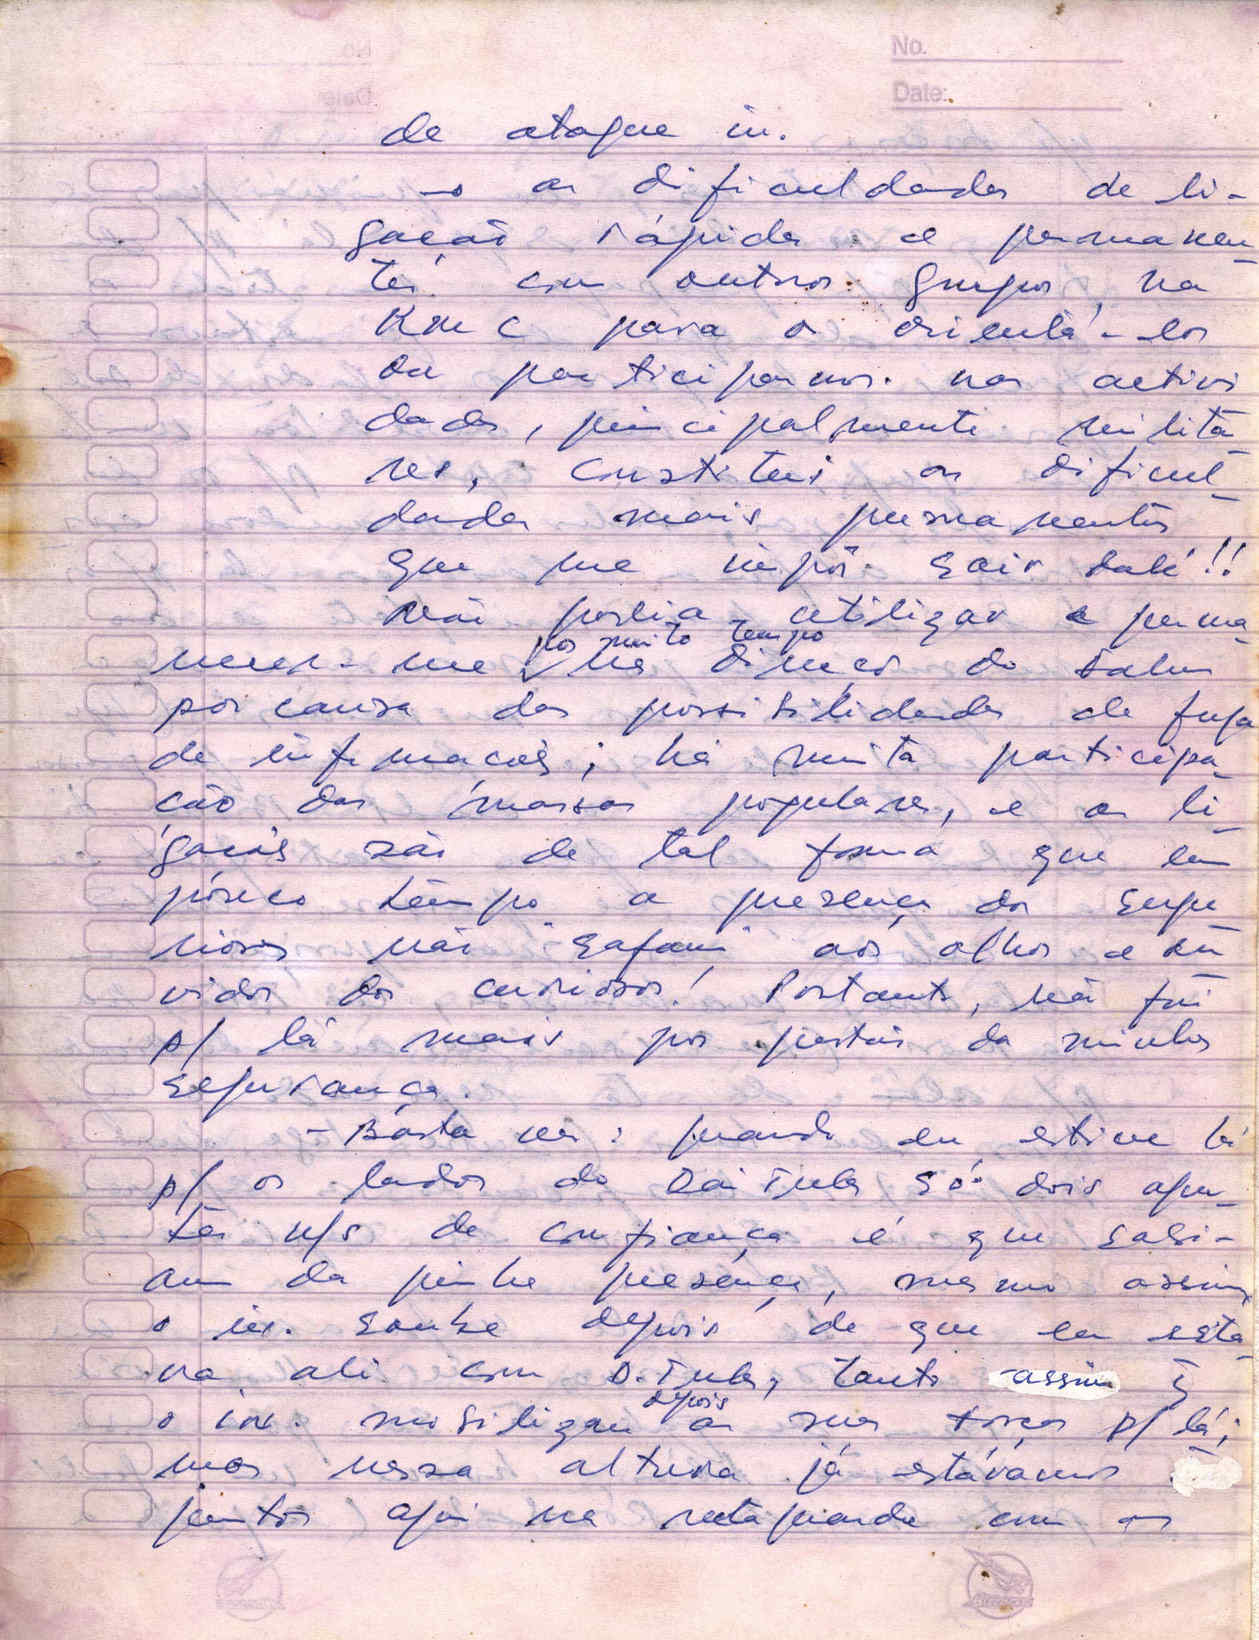 No.
Date:
de ataque in.
→ as dificuldades de li-
gação rápida e permanen-
tes com outros grupos na
RNC para a orientá-los
ou participarmos nas activi
dades, principalmente milita
res, constitui as dificul-
dades mais permanentes
que me impôs sair dali!!
Não podia utilizar e perma-
necer-me na direção do
por muito tempo
por causa das possibilidades de fuga
de informações; há muita participa-
ção das massas populares, e as li-
gações são de tal forma que em
pouco tempo a presença dos supe
riores não "safam" aos olhos e ou
vidos dos curiosos! Portanto, não fui
p/ lá mais por questões da minha
segurança.
- Basta ver: quando eu estive lá
p/ os lados do Dai Tula só dois agen-
tes n/s de confiança é que sabi-
am da minha presença, mesmo assim
o in. soube depois de que eu esta
va ali com D. Tula, tanto assim q̃
depois
o in. mobilizou as suas forças p/ lá;
mas nessa altura já estávamos
juntos aqui na retaguarda com os